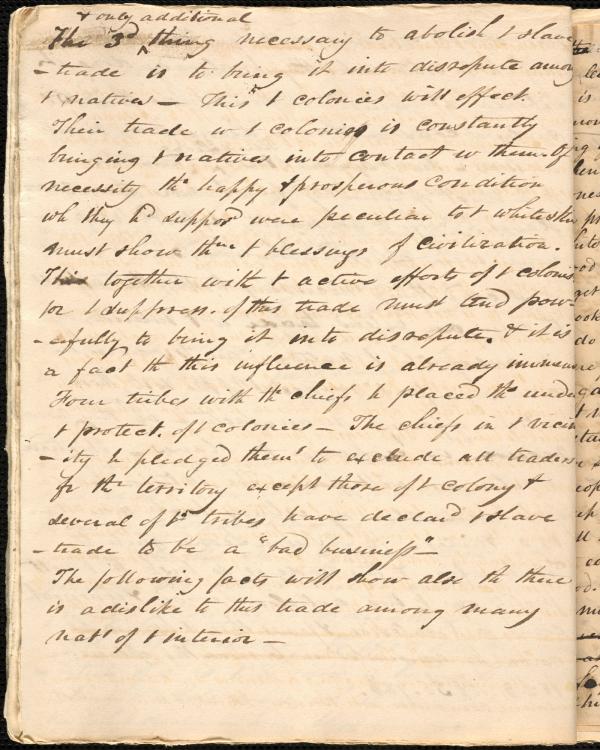 & only additional
The 3d thing necessary to abolish t slave
-trade is to bring it into disrepute among
t natives — This t colonies will effect.
Their trade w t colonies is constantly
bringing t natives into contact w them. Of
necessity th happy & prosperous condition
wh they hd suppos'd were peculiar to t whites
must show thm t blessings of civilization.
This together with t active efforts of t colonis
for t suppress. of this trade must tend pow-
-erfully to bring it into disrepute. & it is
a fact th this influence is already immense
Four tribes with thr chiefs h placed thms under
t protect. of t colonies — The chiefs in t vicin
-ity h pledged thems to exclude all traders
fr thr territory except those of t colony &
several of ts tribes have declar'd t slave
-trade to be a "bad business" —
The following facts will show also th there
is a dislike to this trade among many
nats of t interior —